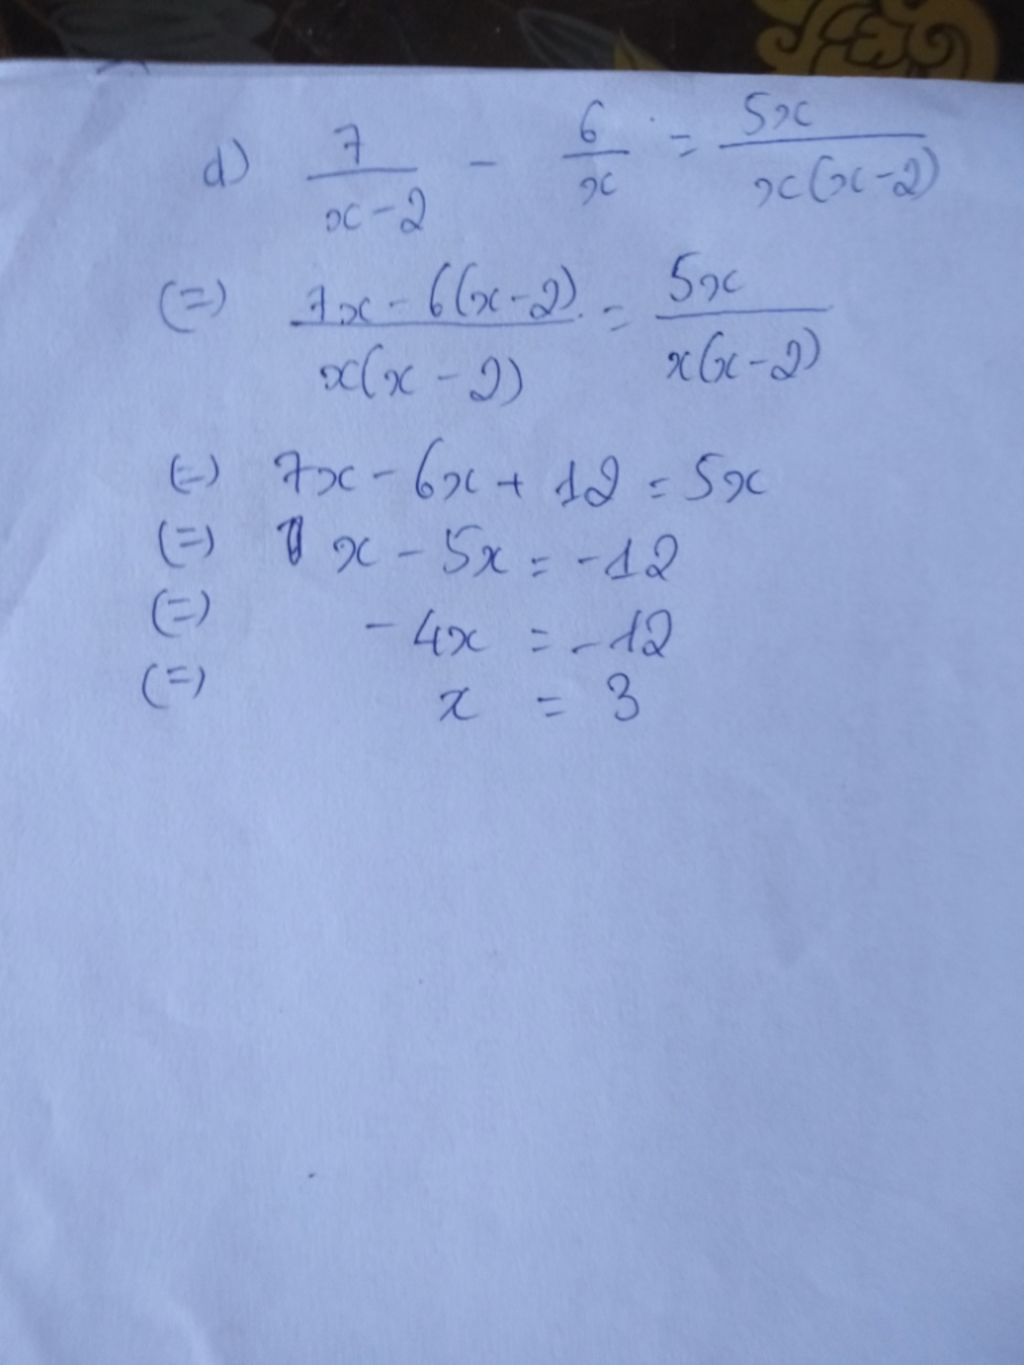 d) 7/(x-2) - 6/x = 5x/(x(x-2))
(=) (7x - 6(x-2))/(x(x-2)) = 5x/(x(x-2))
(=) 7x - 6x + 12 = 5x
(=) x - 5x = -12
(=) -4x = -12
(=) x = 3